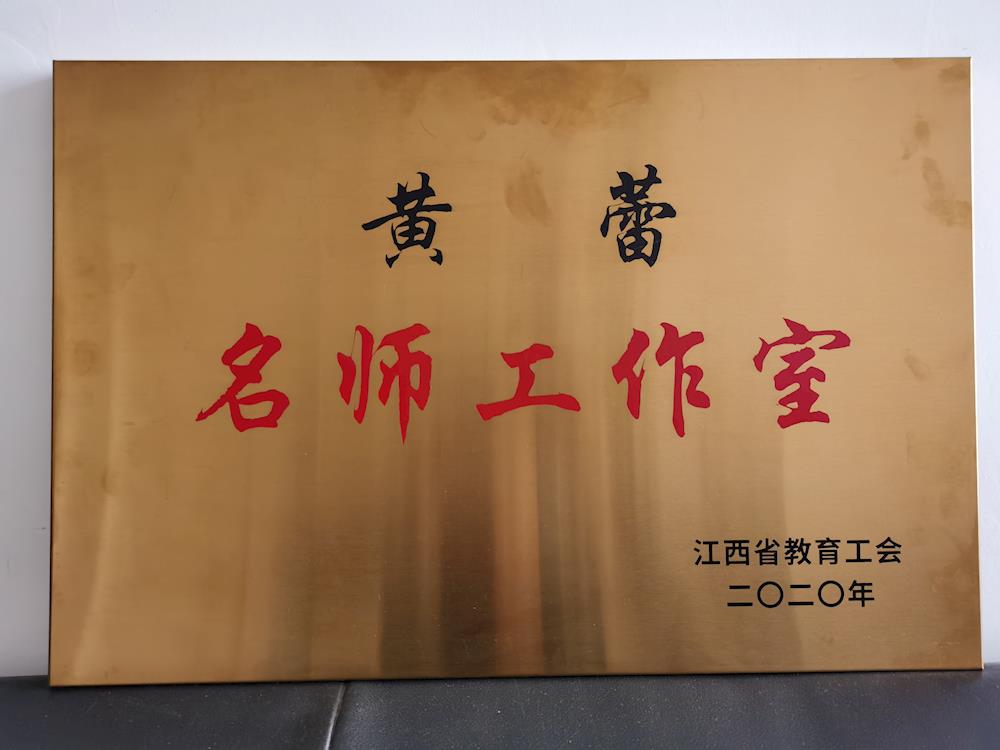 黄蕾
名师工作室
江西省教育工会
二〇二〇年